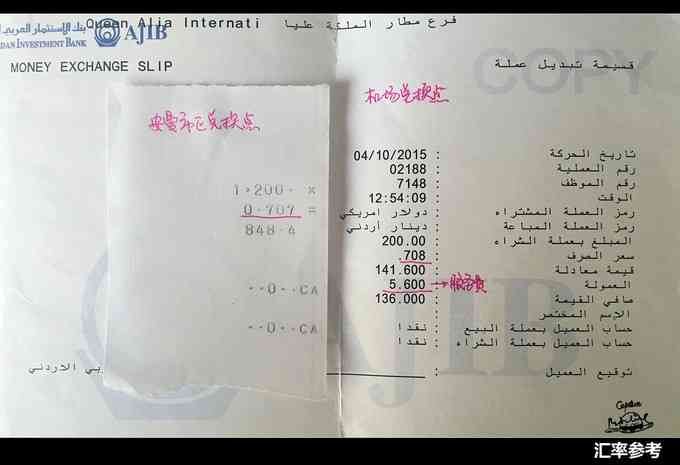 بنك الاستثمار العربي
Queen Alia Internati
فرع مطار الملكة عليا
AJIB
DAN INVESTMENT BANK
MONEY EXCHANGE SLIP
قسيمة تبديل عملة
COPY
机场兑换点
安曼市区兑换点
1,200. ×
0.707 =
848.4
..0..CA
..0..CA
تاريخ الحركة : 04/10/2015
رقم العملية : 02188
رقم الموظف : 7148
الوقت : 12:54:09
رمز العملة المشتراه : دولار امريكي
رمز العملة المباعة : دينار أردني
المبلغ بعملة الشراء : 200.00
سعر الصرف : .708
قيمة معادلة : 141.600
العمولة : 5.600 → 服务费
صافي القيمة : 136.000
الاسم المختصر :
حساب العميل بعملة البيع : نقدا
حساب العميل بعملة الشراء : نقدا
توقيع العميل :
بي الاردني
AJIB
汇率参考